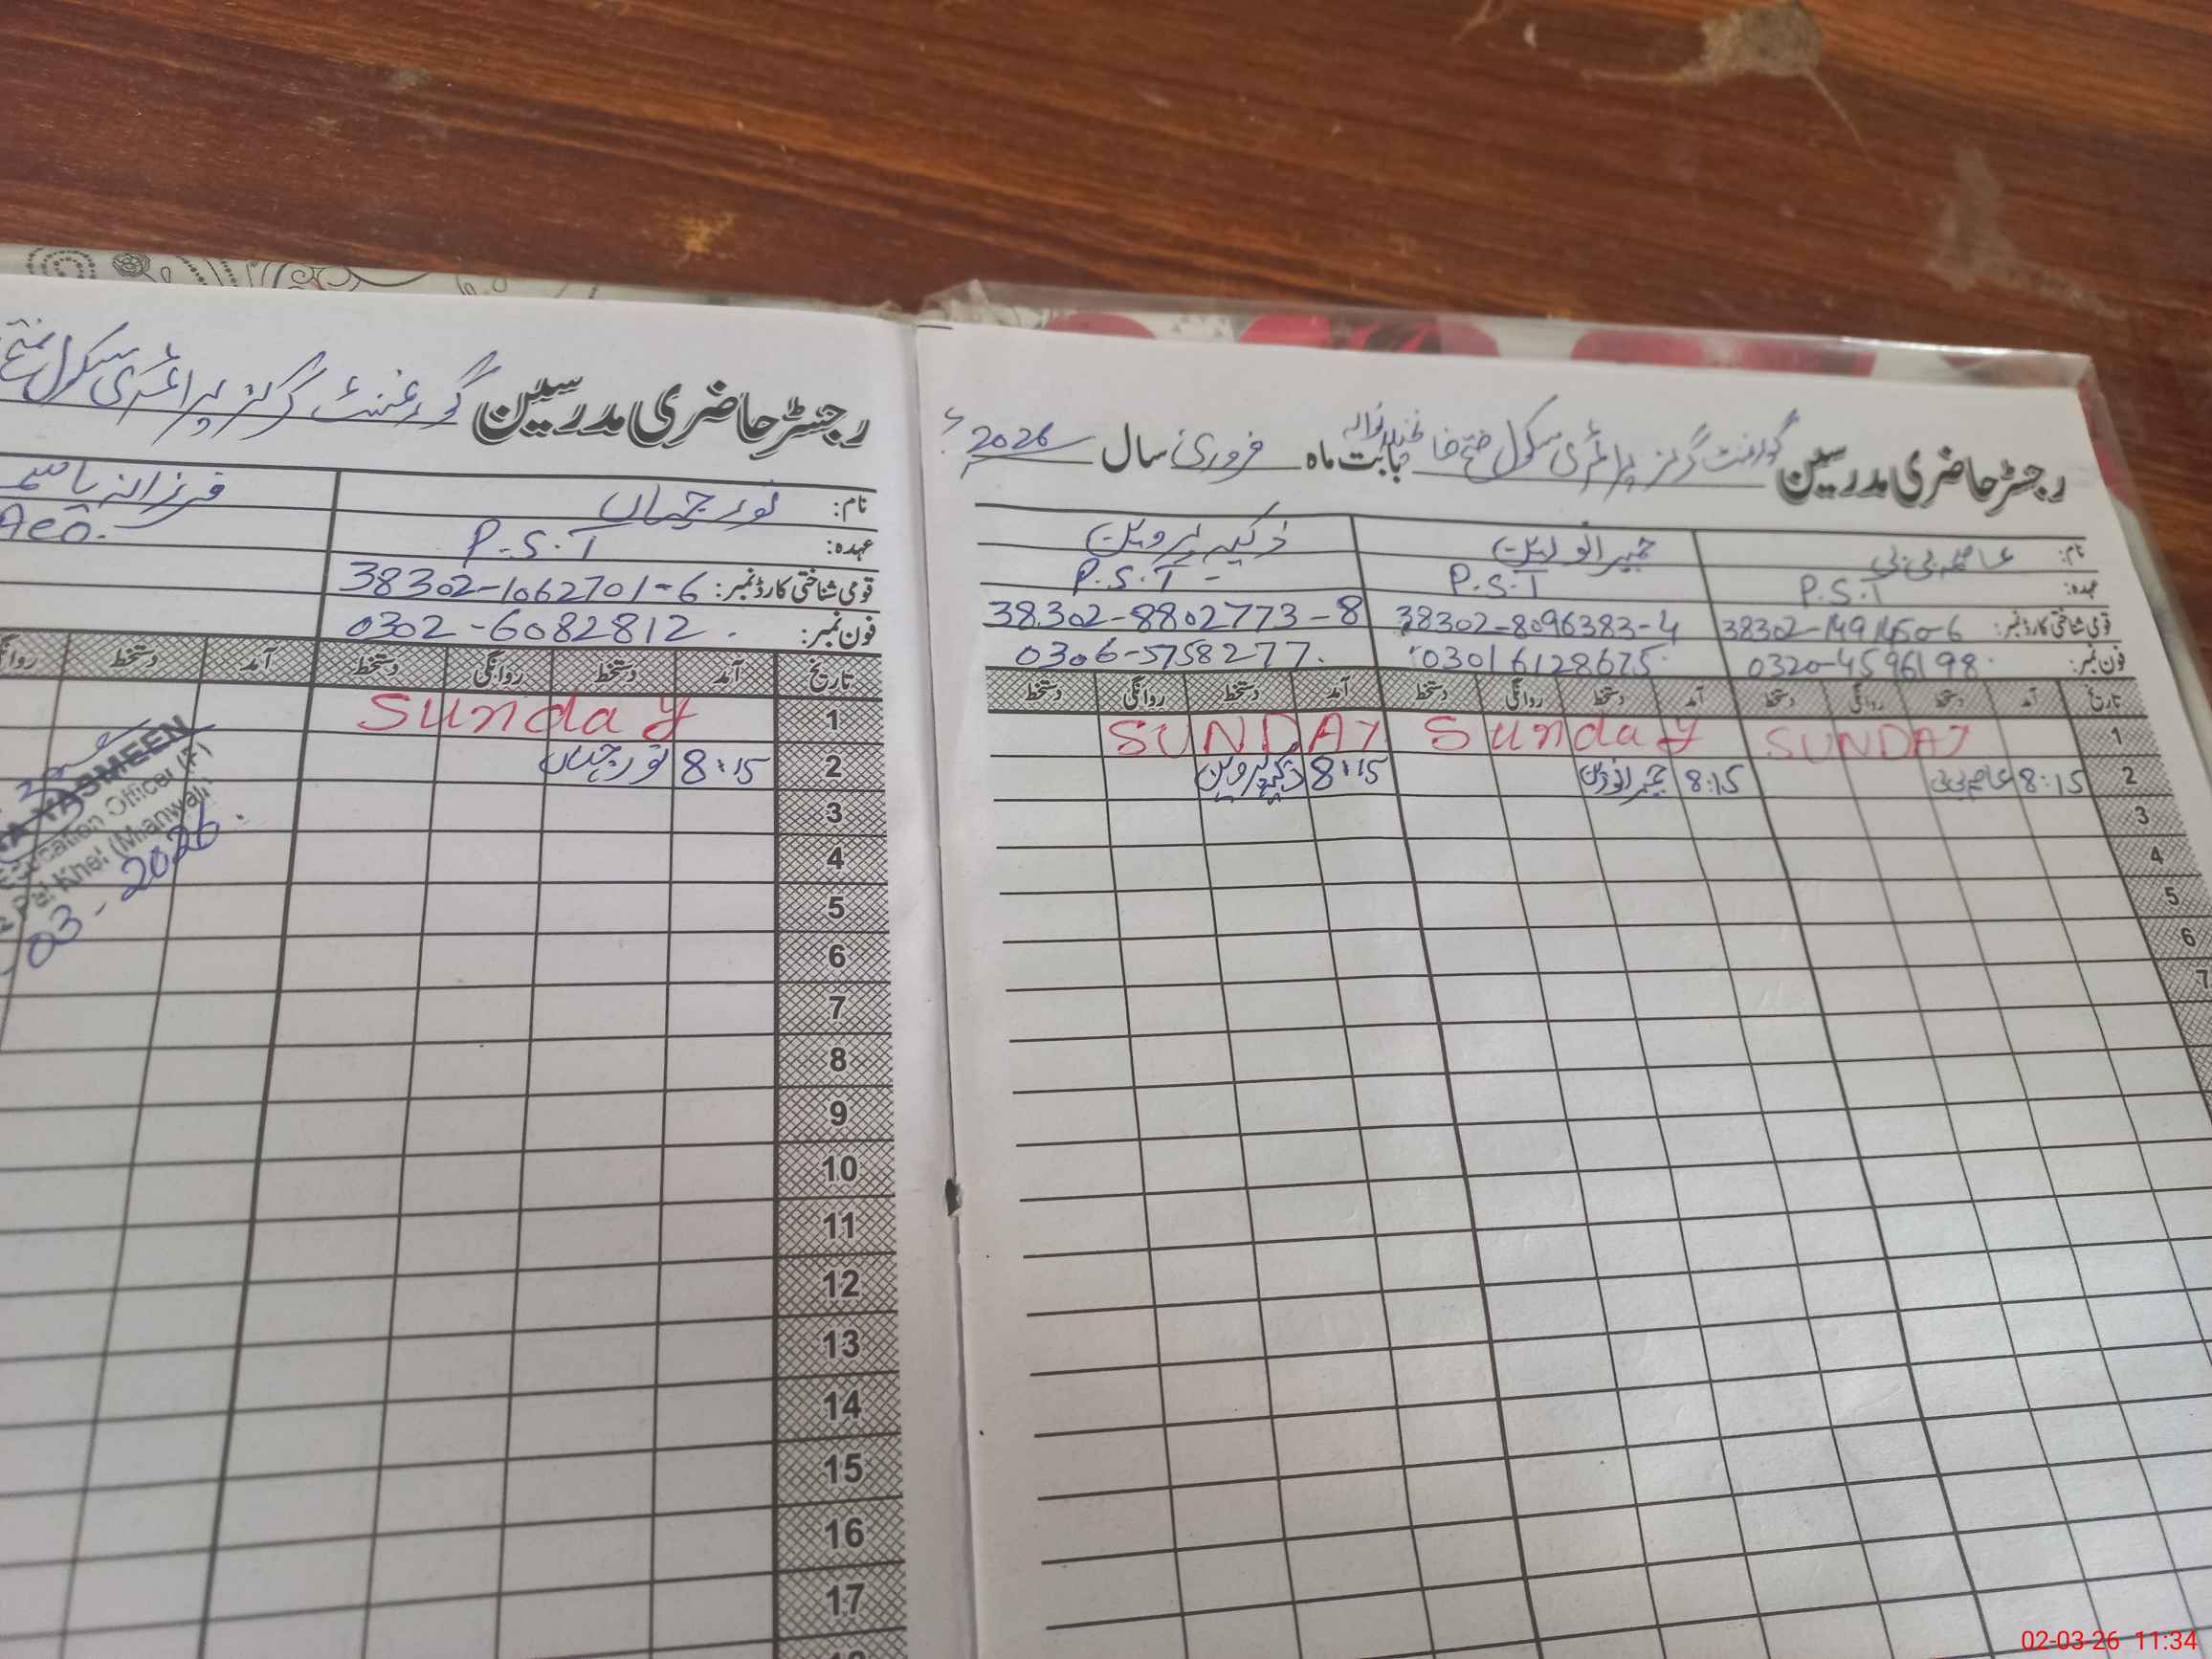 رجسٹر حاضری مدرسین گورنمنٹ گرلز پرائمری سکول فتح خانخیلانوالہ بابت ماہ فروری سال 2026ء
نام: عاصمہ بی بی
ذکیہ پروین
عہدہ: P.S.T P.S.T P.S.T -
قومی شناختی کارڈ نمبر: 38302-8096383-4 38302-8802773-8
فون نمبر: 0320-4596198 03016128675 0306-5758277.
تاریخ آمد دستخط روانگی دستخط آمد دستخط روانگی دستخط آمد دستخط روانگی دستخط
1 SUNDAY Sunday SUNDAY
2 8:15 عاصمہ بی بی 8:15 8:15 ذکیہ پروین
3
4
5
6
7
رجسٹر حاضری مدرسین گورنمنٹ گرلز پرائمری سکول فتح
نام: نور جہاں فرزانہ یاسمین
عہدہ: P.S.T Aeo.
قومی شناختی کارڈ نمبر: 38302-1062701-6
فون نمبر: 0302-6082812.
تاریخ آمد دستخط روانگی دستخط آمد دستخط
1 Sunday
2 8:15 نور جہاں
3
4
5
6
7
8
9
10
11
12
13
14
15
16
17
18
YASMEEN
Education Officer (F)
Pai Khel (Mianwali)
03-2026.
02-03-26 11:34